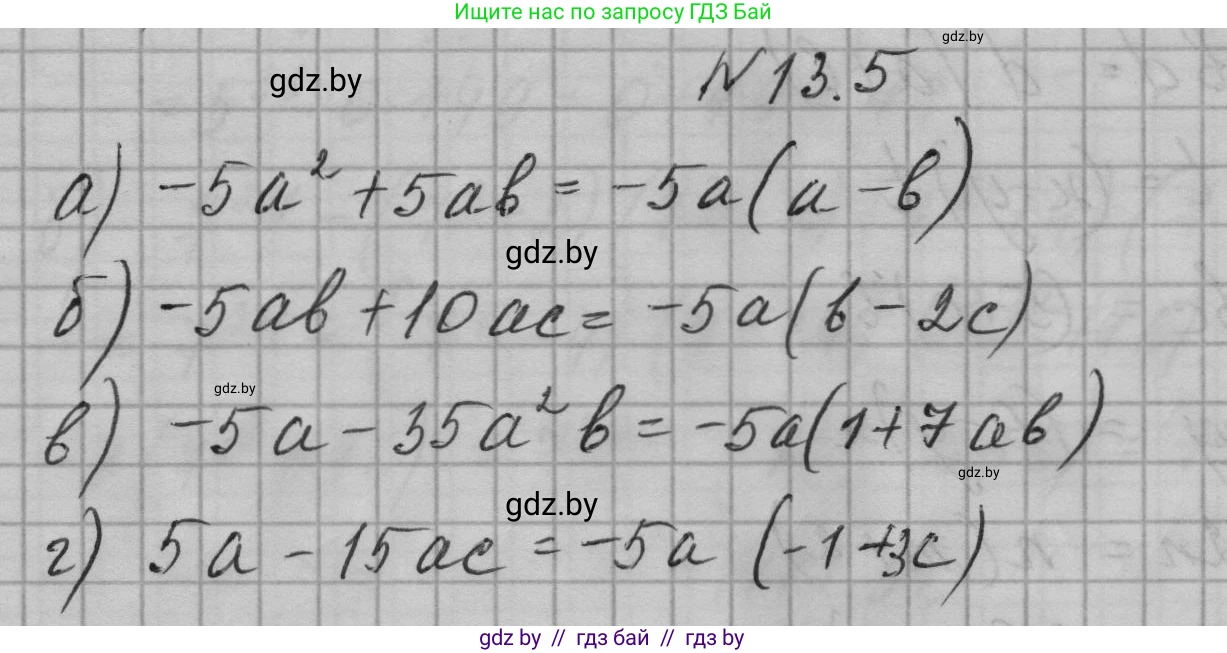 Ищите нас по запросу ГДЗ Бай
gdz.by
gdz.by
N 13.5
а) -5a² + 5ab = -5a(a - b)
gdz.by
б) -5ab + 10ac = -5a(b - 2c)
gdz.by
в) -5a - 35a²b = -5a(1 + 7ab)
gdz.by
gdz.by
г) 5a - 15ac = -5a (-1 + 3c)
gdz by // гдз бай // гдз by